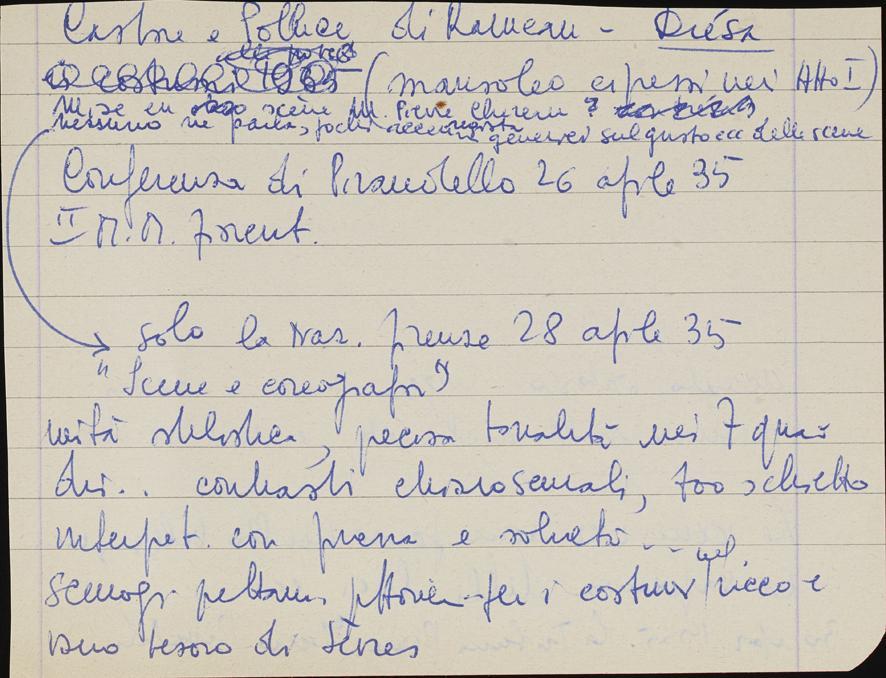 Castore e Polluce di Rameau - Drésa
costumi 1935 (mausoleo cipressi nei Atto I)
Mise en scène M. Pierre Chereau ?
nessuno ne parla, pochi generici sul gusto ecc delle scene
Conferenza di Pirandello 26 aprile 35
II M.M. fiorent.
solo la Naz. firenze 28 aprile 35
"Scene e coreografi"
unità stilistica, precisa tonalità nei 7 qua=
dri.. contrasti chiaroscurali, 700 schietto
interpret. con finezza e sobrietà ...
scenogr. pittorica - per i costumi nel ricco e
vano tesoro di Sèvres